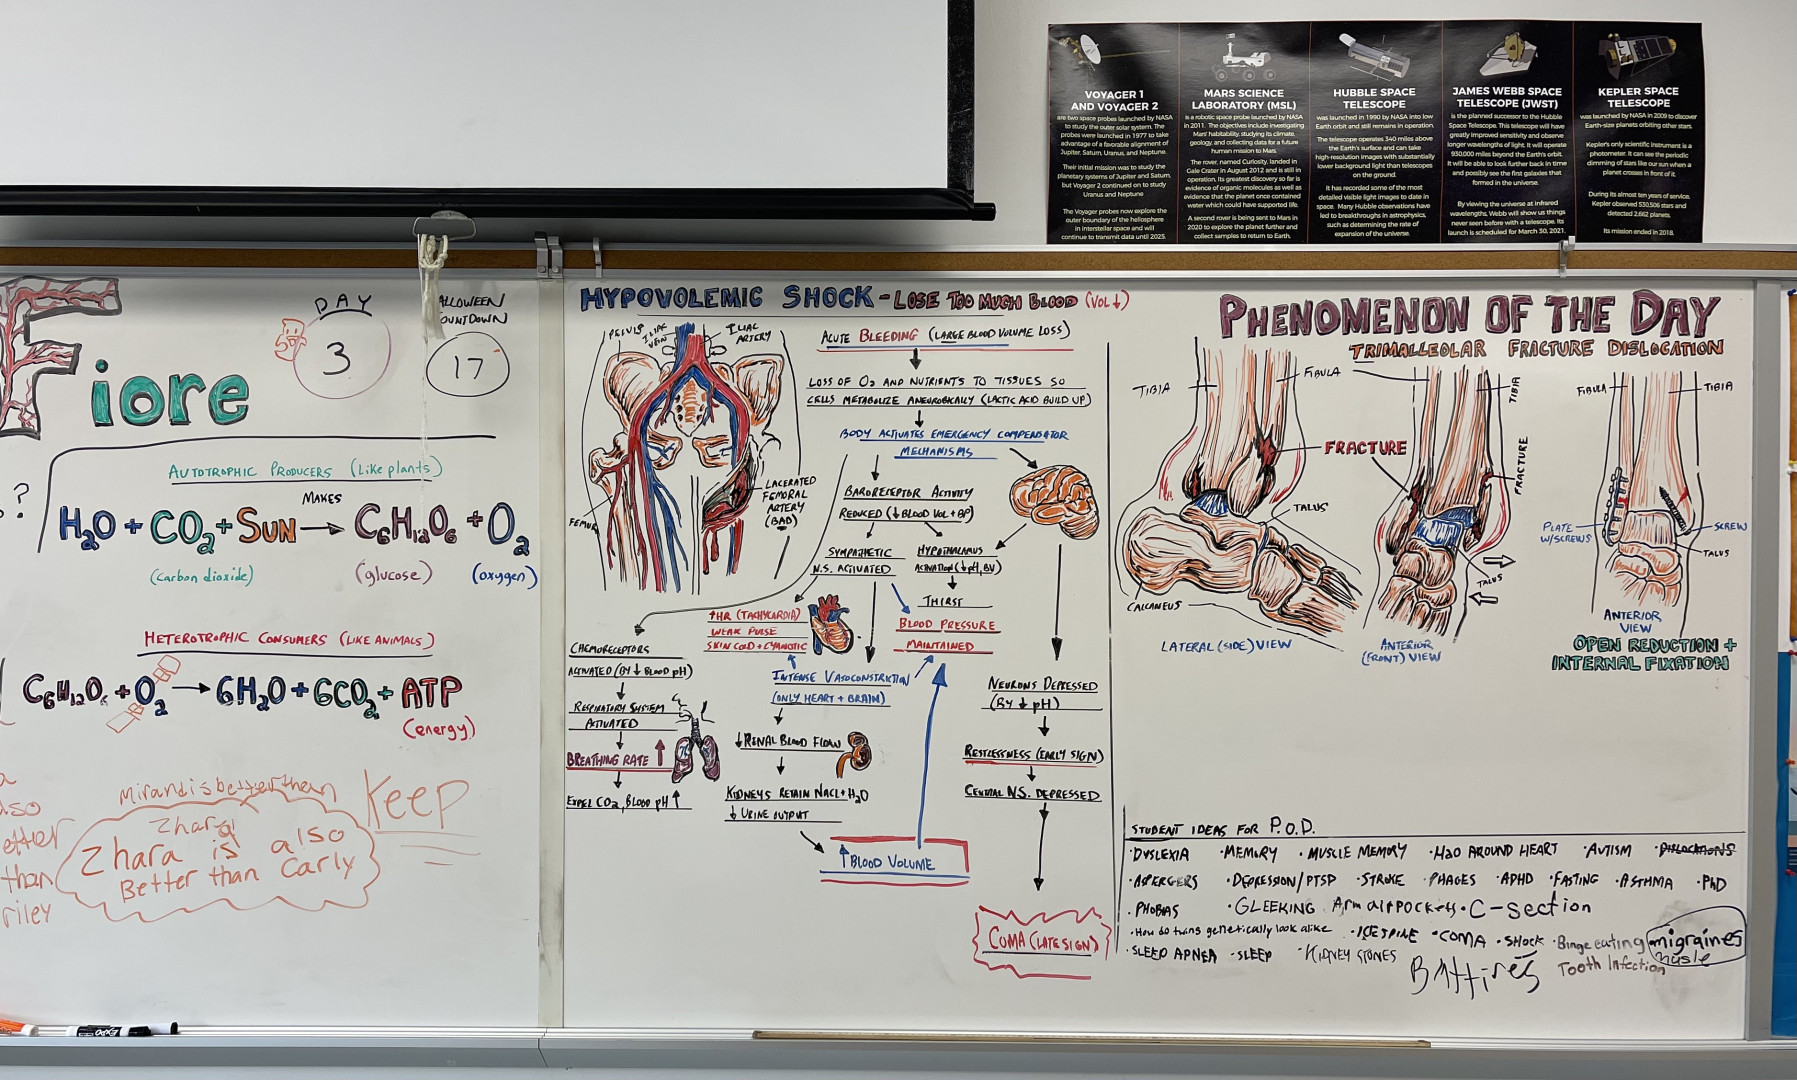 VOYAGER 1
AND VOYAGER 2
are two space probes launched by NASA
to study the outer solar system. The
probes were launched in 1977 to take
advantage of a favorable alignment of
Jupiter, Saturn, Uranus, and Neptune.
Their initial mission was to study the
planetary systems of Jupiter and Saturn,
but Voyager 2 continued on to study
Uranus and Neptune
The Voyager probes now explore the
outer boundary of the heliosphere
in interstellar space and will
continue to transmit data until 2025.
MARS SCIENCE
LABORATORY (MSL)
is a robotic space probe launched by NASA
in 2011. The objectives include investigating
Mars' habitability, studying its climate,
geology, and collecting data for a future
human mission to Mars.
The rover, named Curiosity, landed in
Gale Crater in August 2012 and is still in
operation. Its greatest discovery so far is
evidence of organic molecules as well as
evidence that the planet once contained
water which could have supported life.
A second rover is being sent to Mars in
2020 to explore the planet further and
collect samples to return to Earth.
HUBBLE SPACE
TELESCOPE
was launched in 1990 by NASA into low
Earth orbit and still remains in operation.
The telescope operates 340 miles above
the Earth's surface and can take
high-resolution images with substantially
lower background light than telescopes
on the ground.
It has recorded some of the most
detailed visible light images to date in
space. Many Hubble observations have
led to breakthroughs in astrophysics,
such as determining the rate of
expansion of the universe.
JAMES WEBB SPACE
TELESCOPE (JWST)
is the planned successor to the Hubble
Space Telescope. This telescope will have
greatly improved sensitivity and observe
longer wavelengths of light. It will operate
930,000 miles beyond the Earth's orbit.
It will be able to look further back in time
and possibly see the first galaxies that
formed in the universe.
By viewing the universe at infrared
wavelengths, Webb will show us things
never seen before with a telescope. Its
launch is scheduled for March 30, 2021.
KEPLER SPACE
TELESCOPE
was launched by NASA in 2009 to discover
Earth-size planets orbiting other stars.
Kepler's only scientific instrument is a
photometer. It can see the periodic
dimming of stars like our sun when a
planet crosses in front of it.
During its almost ten years of service,
Kepler observed 530,506 stars and
detected 2,662 planets.
Its mission ended in 2018.
Fiore
DAY
3
ALLOWEEN
OUNTDOWN
17
AUTOTROPHIC PRODUCERS (Like plants)
?
H2O + CO2 + SUN MAKES → C6H12O6 + O2
(carbon dioxide) (glucose) (oxygen)
HETEROTROPHIC CONSUMERS (LIKE ANIMALS)
C6H12O6 + O2 → 6H2O + 6CO2 + ATP
(energy)
a
lso
etter
than
riley
Mirand is better then
Zhara
Zhara is also
Better than Carly
Keep
EXPO
HYPOVOLEMIC SHOCK - LOSE TOO MUCH BLOOD (VOL ↓)
PELVIS
ILIAC
VEIN
ILIAC
ARTERY
FEMUR
LACERATED
FEMORAL
ARTERY
(BAD)
ACUTE BLEEDING (LARGE BLOOD VOLUME LOSS)
LOSS OF O2 AND NUTRIENTS TO TISSUES SO
CELLS METABOLIZE ANEUROBICALLY (LACTIC ACID BUILD UP)
BODY ACTIVATES EMERGENCY COMPENSATOR
MECHANISMS
BARORECEPTOR ACTIVITY
REDUCED (↓ BLOOD VOL + BP)
SYMPATHETIC
N.S. ACTIVATED
HYPOTHALAMUS
ACTIVATION (↓ pH, BV)
THIRST
BLOOD PRESSURE
MAINTAINED
↑HR (TACHYCARDIA)
WEAK PULSE
SKIN COLD + CYANOTIC
INTENSE VASOCONSTRICTION
(ONLY HEART + BRAIN)
↓ RENAL BLOOD FLOW
KIDNEYS RETAIN NACL + H2O
↓ URINE OUTPUT
↑ BLOOD VOLUME
CHEMORECEPTORS
ACTIVATED (BY ↓ BLOOD pH)
RESPIRATORY SYSTEM
ACTIVATED
BREATHING RATE ↑
EXPEL CO2, BLOOD pH ↑
NEURONS DEPRESSED
(BY ↓ pH)
RESTLESSNESS (EARLY SIGN)
CENTRAL N.S. DEPRESSED
COMA (LATE SIGN)
PHENOMENON OF THE DAY
TRIMALLEOLAR FRACTURE DISLOCATION
TIBIA
FIBULA
FRACTURE
TALUS
CALCANEUS
LATERAL (SIDE) VIEW
TIBIA
FRACTURE
TALUS
ANTERIOR
(FRONT) VIEW
FIBULA
TIBIA
PLATE
W/SCREWS
SCREW
TALUS
ANTERIOR
VIEW
OPEN REDUCTION +
INTERNAL FIXATION
STUDENT IDEAS FOR P.O.D.
·DYSLEXIA ·MEMORY ·MUSCLE MEMORY ·H2O AROUND HEART ·AUTISM ·DISLOCATIONS
·ASPERGERS ·DEPRESSION/PTSP ·STROKE ·PHAGES ·APHD ·FASTING ·ASTHMA ·PhD
·PHOBIAS ·GLEEKING Arm air pockets ·C-section
·How do twins genetically look alike ·ICE SPINE ·COMA ·SHOCK ·Binge eating migraines
·SLEEP APNEA ·SLEEP ·KIDNEY STONES Tooth Infection